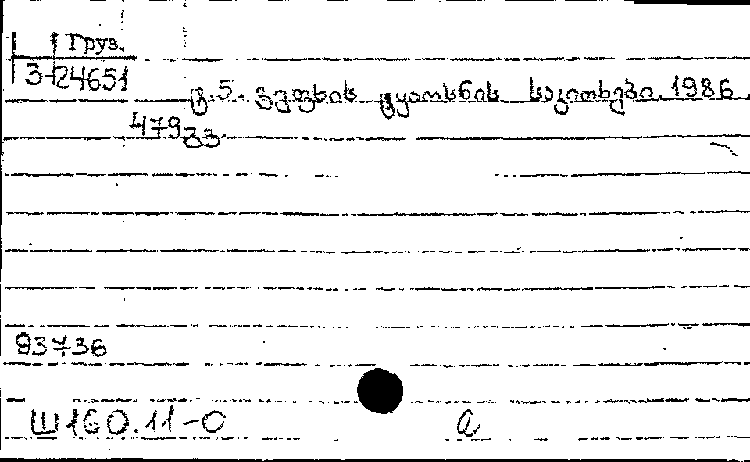 Груз.
3-24651
ტ.5. ვეფხის ტყაოსნის საკითხები. 1986.
479გვ.
93736
Ш160.11-0
a